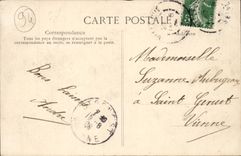 94
CARTE POSTALE
Correspondance
Tous les pays étrangers n'acceptent pas la
correspondance au recto, se renseigner à la poste.
Mademoiselle
Suzanne
à Saint Genest
Vienne
Bons baisers
André